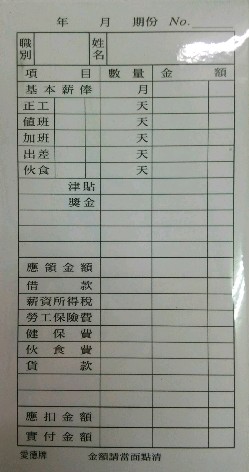 年 月 期份 No.
職別 姓名
項 目 數 量 金 額
基本薪俸 月
正工 天
值班 天
加班 天
出差 天
伙食 天
津貼
獎金
應領金額
借 款
薪資所得稅
勞工保險費
健 保 費
伙 食 費
貨 款
應扣金額
實付金額
愛德牌 金額請當面點清